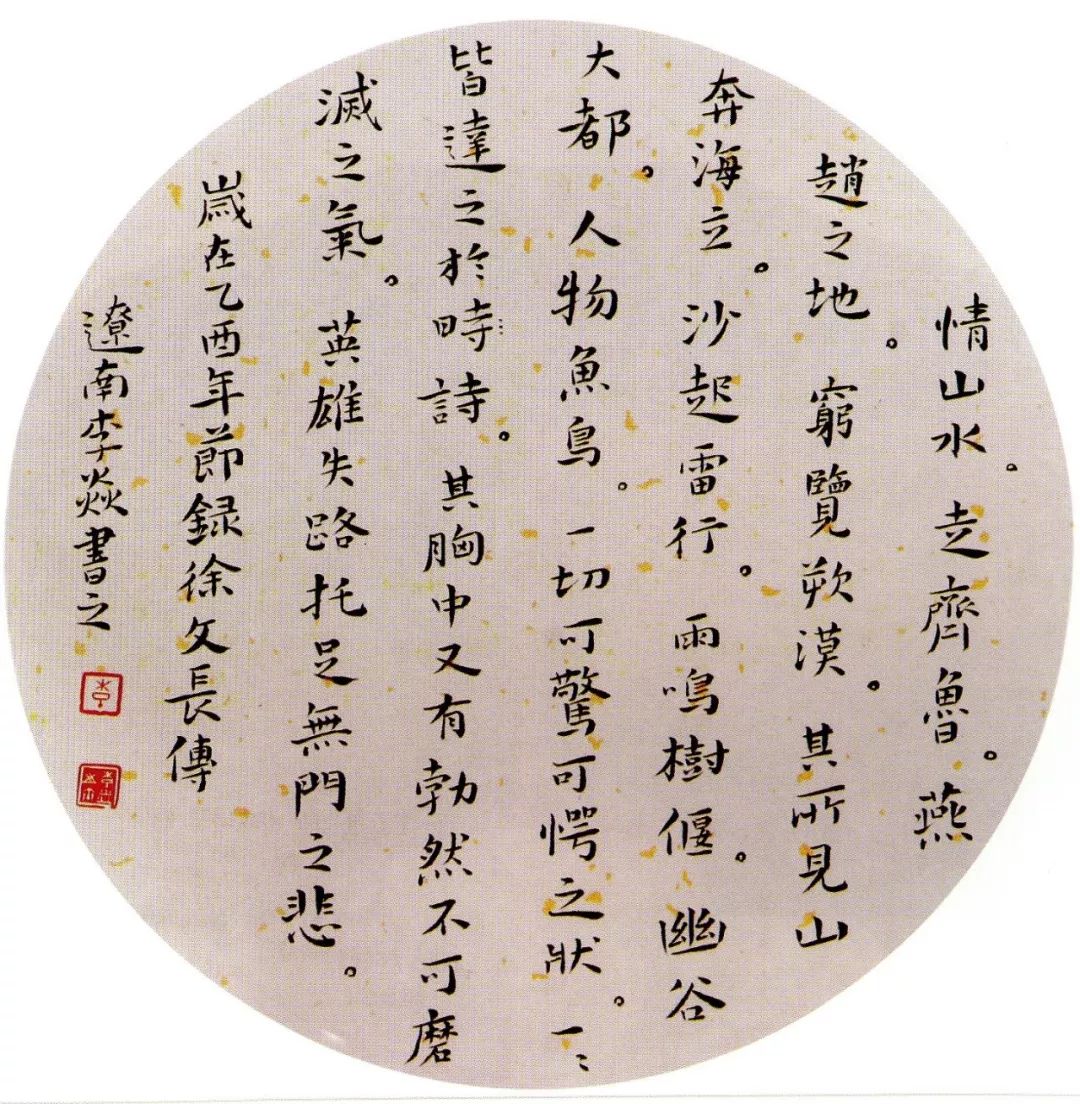 情山水。走齊魯。燕
趙之地。窮覽朔漠。其所見山
奔海立。沙起雷行。雨鳴樹偃。幽谷
大都。人物魚鳥。一切可驚可愕之狀。一〻
皆達之於時詩。其胸中又有勃然不可磨
滅之氣。英雄失路托足無門之悲。
歲在乙酉年節録徐文長傳
遼南李焱書之
李